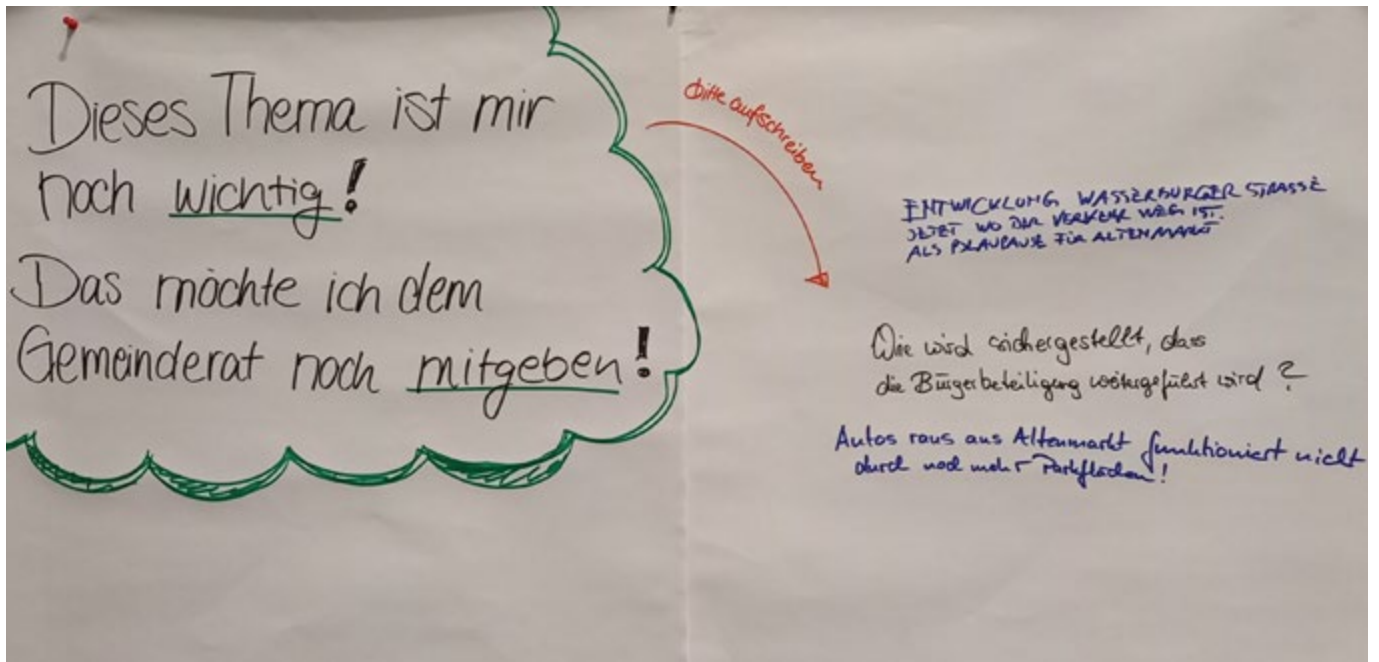 Dieses Thema ist mir
noch wichtig!
Das möchte ich dem
Gemeinderat noch mitgeben!
bitte aufschreiben
ENTWICKLUNG WASSERBURGER STRASSE
JETZT WO DER VERKEHR WEG IST.
ALS BLAUPAUSE FÜR ALTENMARKT
Wie wird sichergestellt, dass
die Bürgerbeteiligung weitergeführt wird?
Autos raus aus Altenmarkt funktioniert nicht
durch noch mehr Parkflächen!